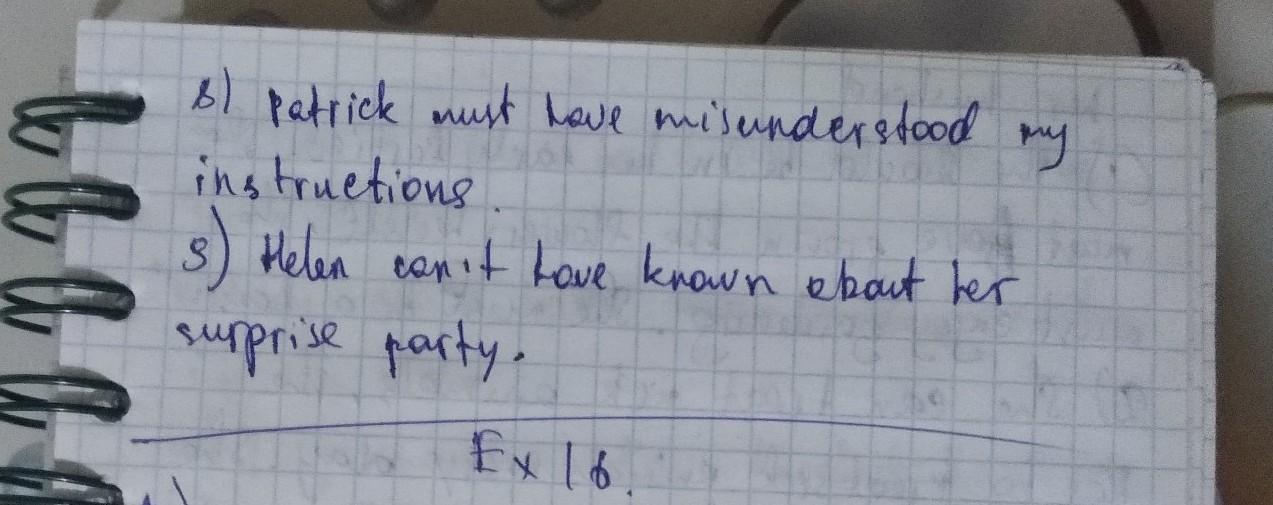 8) Patrick must have misunderstood my
instructions.
9) Helen can't have known about her
surprise party.
Ex 16.